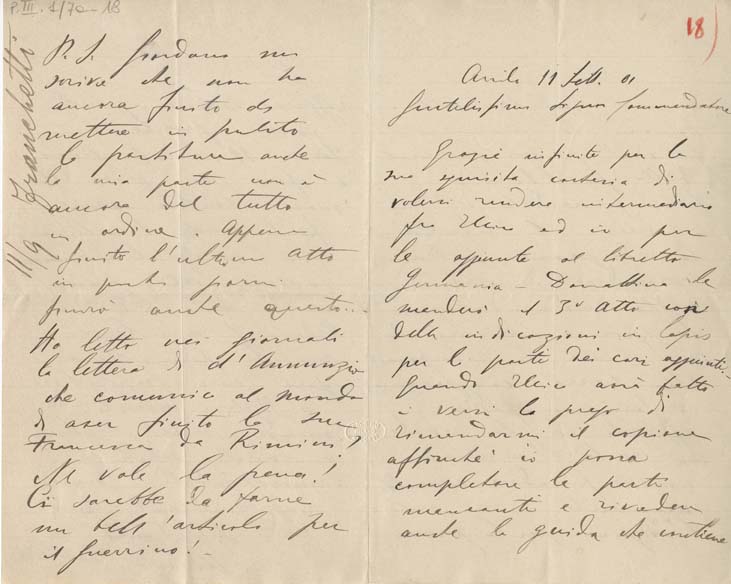 P. III. 1/70-18
Franchetti
11/9
P. S. Giordano mi
scrive che non ha
ancora finito di
mettere in pulito
la partitura anche
la mia parte non è
ancora del tutto
in ordine. Appena
finito l'ultimo atto
in pochi giorni
finirò anche questo...
Ho letto nei giornali
la lettera di d'Annunzio
che comunica al mondo
di aver finito la sua
Francesca da Rimini!
Ne vale la pena!
Ci sarebbe da farne
un bell'articolo per
il Guerrino!
18)
11 Sett. 01
Gentilissimo Signor Commendatore
Grazie infinite per la
sua squisita cortesia di
volersi rendere intermediario
fra Illica ed io per
le aggiunte al libretto
Germania - Domattina le
manderò il 3º atto con
delle indicazioni in lapis
per le parti dei cori aggiunti.
Quando Illica avrà fatto
i versi la prego di
rimandarmi il copione
affinché io possa
completare le parti
mancanti e rivedere
anche la guida che contiene